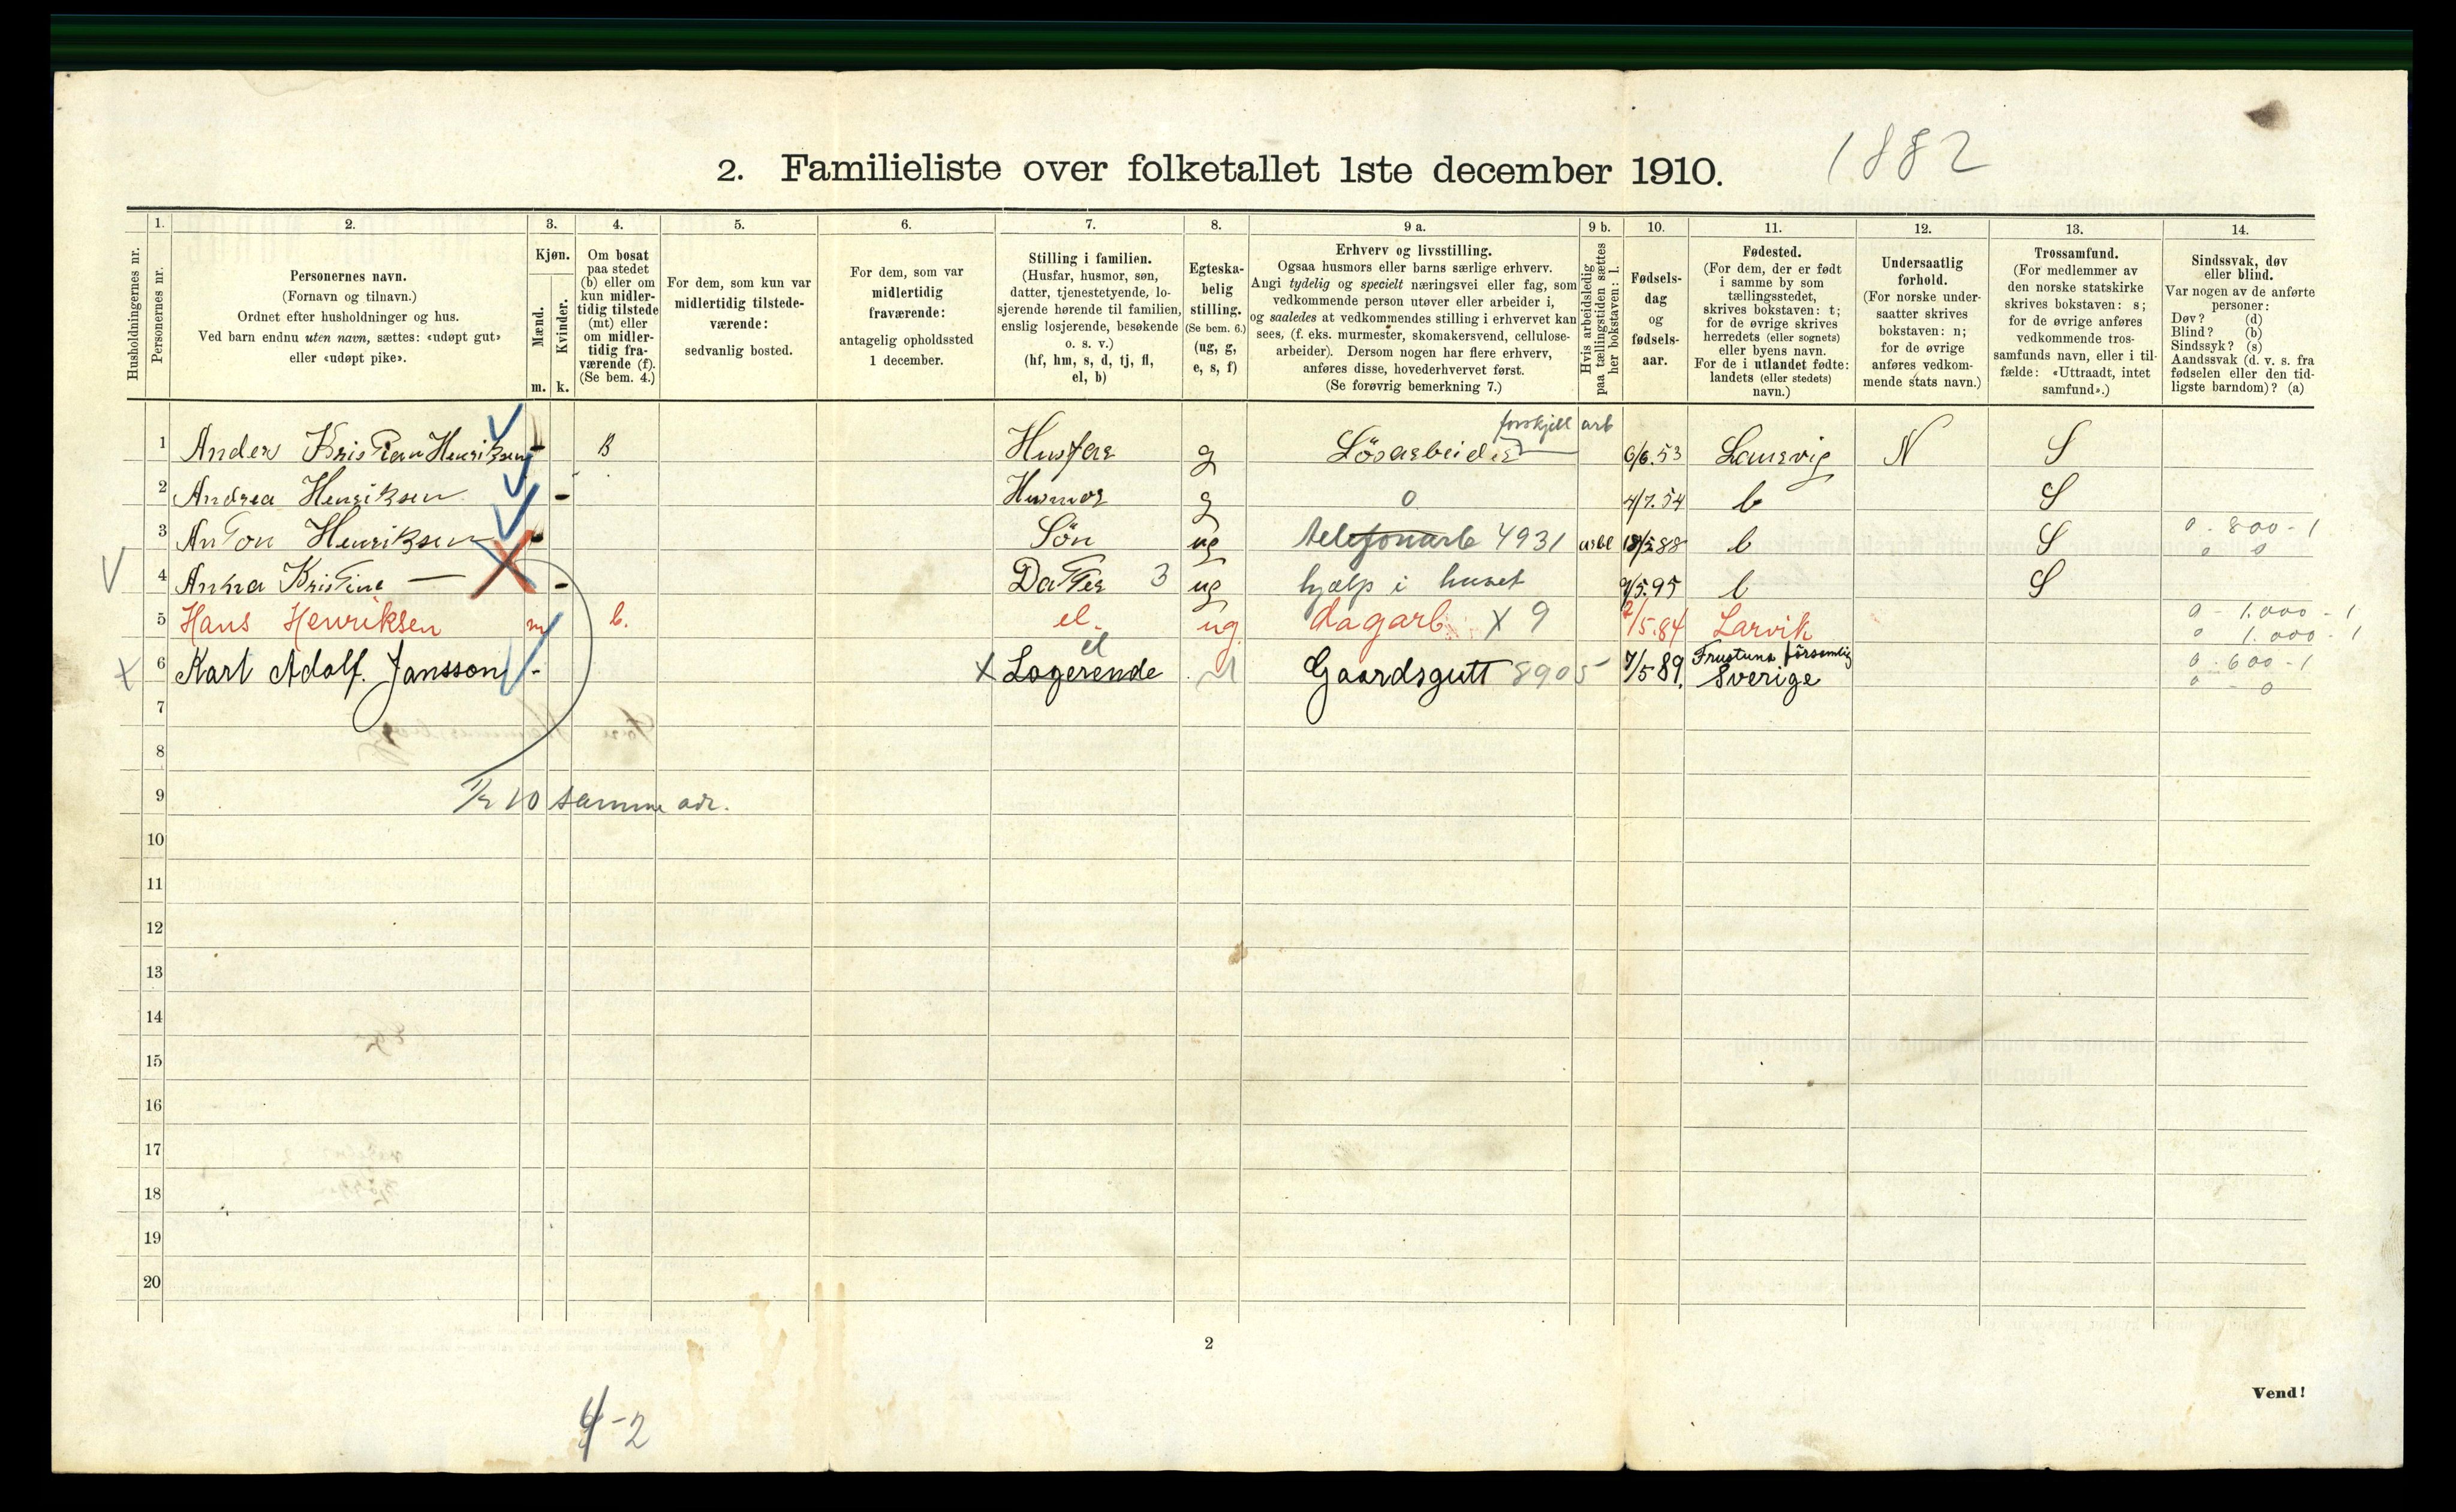 1882
2. Familieliste over folketallet 1ste december 1910.
Husholdningernes nr.
1. Personernes nr.
2. Personernes navn.
(Fornavn og tilnavn.)
Ordnet efter husholdninger og hus.
Ved barn endnu uten navn, sættes: «udøpt gut»
eller «udøpt pike».
3. Kjøn.
Mænd. m.
Kvinder. k.
4. Om bosat
paa stedet
(b) eller om
kun midler-
tidig tilstede
(mt) eller
om midler-
tidig fra-
værende (f).
(Se bem. 4.)
5. For dem, som kun var
midlertidig tilstede-
værende:
sedvanlig bosted.
6. For dem, som var
midlertidig
fraværende:
antagelig opholdssted
1 december.
7. Stilling i familien.
(Husfar, husmor, søn,
datter, tjenestetyende, lo-
sjerende hørende til familien,
enslig losjerende, besøkende
o. s. v.)
(hf, hm, s, d, tj, fl,
el, b)
8. Egteska-
belig
stilling.
(Se bem. 6.)
(ug, g,
e, s, f)
9 a. Erhverv og livsstilling.
Ogsaa husmors eller barns særlige erhverv.
Angi tydelig og specielt næringsvei eller fag, som
vedkommende person utøver eller arbeider i,
og saaledes at vedkommendes stilling i erhvervet kan
sees, (f. eks. murmester, skomakersvend, cellulose-
arbeider). Dersom nogen har flere erhverv,
anføres disse, hovederhvervet først.
(Se forøvrig bemerkning 7.)
9 b. Hvis arbeidsledig
paa tællingstiden sættes
her bokstaven: l.
10. Fødsels-
dag
og
fødsels-
aar.
11. Fødested.
(For dem, der er født
i samme by som
tællingsstedet,
skrives bokstaven: t;
for de øvrige skrives
herredets (eller sognets)
eller byens navn.
For de i utlandet fødte:
landets (eller stedets)
navn.)
12. Undersaatlig
forhold.
(For norske under-
saatter skrives
bokstaven: n;
for de øvrige
anføres vedkom-
mende stats navn.)
13. Trossamfund.
(For medlemmer av
den norske statskirke
skrives bokstaven: s;
for de øvrige anføres
vedkommende tros-
samfunds navn, eller i til-
fælde: «Uttraadt, intet
samfund».)
14. Sindssvak, døv
eller blind.
Var nogen av de anførte
personer:
Døv? (d)
Blind? (b)
Sindssyk? (s)
Aandssvak (d. v. s. fra
fødselen eller den tid-
ligste barndom)? (a)
forskjell arb
1 Anders Kristian Henriksen - B Husfar g Lösarbeider 6/6.53 Laurvig N S
2 Andrea Henriksen - Husmor g 0 4/7.54 b S
3 Anton Henriksen - Sön ug telefonarb 4931 18/5.88 b S 0 - 800 - 1
0 0
4 Anna Kristine — - Datter 3 ug hjælp i huset 9/5.95 b S
5 Hans Henriksen m b. el. ug. dagarb. X 9 2/5.84 Larvik 0 - 1.000 - 1
0 1.000 - 1
el
6 Karl Adolf. Jansson - X Logerende Gaardsgutt 8905 7/5 89. Frustuna församling Sverige 0 - 600 - 1
0 - 0
7
8
9 1/2 10 samme adr.
10
11
12
13
14
15
16
17
18
19
20
2
Vend!
4-2